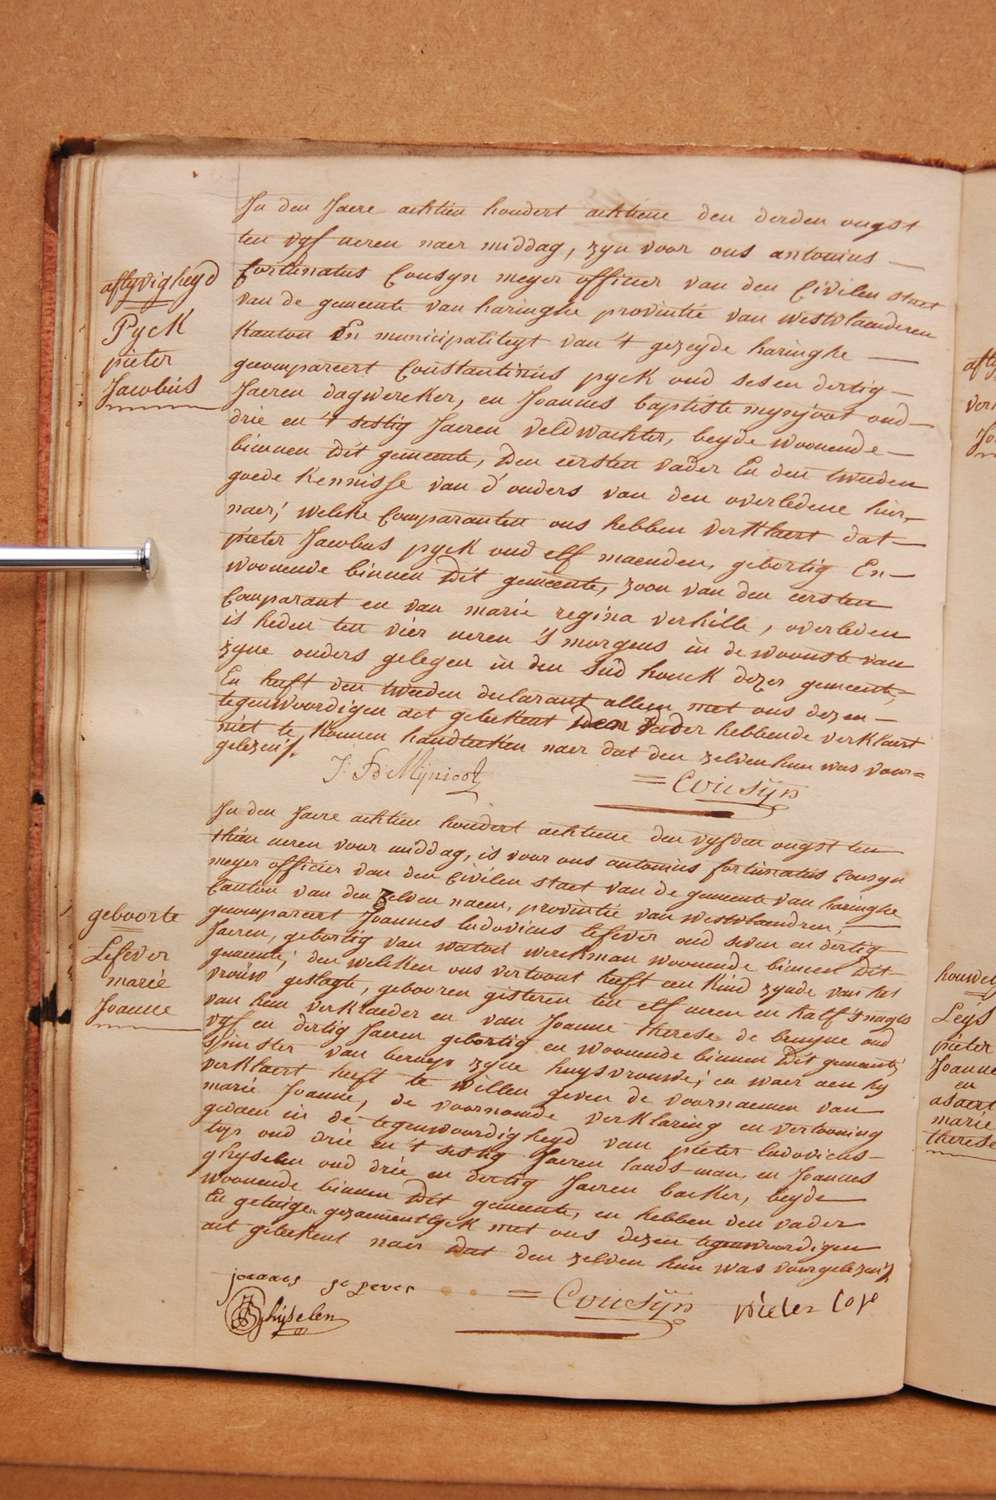 In den Jaere achtien hondert achtiene den derden ougst
ten vyf ueren naer middag, zyn voor ons antonius
fortunatus Cousyn meyer officier van den Civilen staet
van de gemeente van haringhe provintie van westvlaenderen
Kanton En municipaliteyt van 't gezeyde haringhe
gecompareert Constantinus pyck oud ses en dertig
Jaeren dagwercker, en Joannes baptiste
drie en 't sestig Jaeren veldwachter, beyde woonende
binnen dit gemeente, den eersten vader En den tweeden
goede kennisse van d'ouders van den overledene hier
naer, welcke Comparanten ons hebben verklaert dat
pieter Jacobus pyck oud elf maenden, gebortig En
woonende binnen dit gemeente, zoon van den eersten
Comparant en van marie regina verhille, overleden
is heden ten vier ueren 's morgens in de woonste van
zyne ouders gelegen in den Sud houck dezer gemeente,
En heeft den tweeden declarant alleen met ons dezen
tegenwoordigen act geteekent den vader hebbende verklaert
niet te konnen handteeken naer dat den zelven hun was voor=
gelezen.
= Cousijn
aflyvigheyd
Pyck
pieter
Jacobus
In den Jaere achtien hondert achtiene den vyfden ougst ten
thien ueren voor middag, is voor ons antonius fortunatus Cousyn
meyer officier van den Civilen staet van de gemeente van haringhe
Canton van den zelven naem, provintie van westvlaendren,
gecompareert Joannes ludovicus lefever oud seven en dertig
Jaeren, gebortig van watou werkman woonende binnen dit
gemeente, den welcken ons vertoont heeft een kind zynde van het
vrouw geslagte, gebooren gisteren ten elf ueren en half s nagts
van hem verklaeder en van Joanne therese de bruyne oud
vyf en dertig Jaeren gebortig en woonende binnen dit gemeente
spinster van beroep zyne huysvrouwe, en waer aen hy
verklaert heeft te willen geven de voornaemen van
marie Joanne, de voornoemde verklaring en vertooning
gedaen in de tegenwoordigheyd van pieter ludovicus
top oud drie en 't sestig Jaeren landsman, en Joannes
ghyselen oud drie en dertig Jaeren backer, beyde
woonende binnen dit gemeente, en hebben den vader
En getuigen gezaementlyck met ons dezen tegenwoordigen
act geteekent naer dat den zelven hun was voorgelezen
geboorte
Lefever
marie
Joanne
joannes
= Cousijn
ghijselen
aflij
houwely
Leys
pieter
Joanne
en
marie
therese